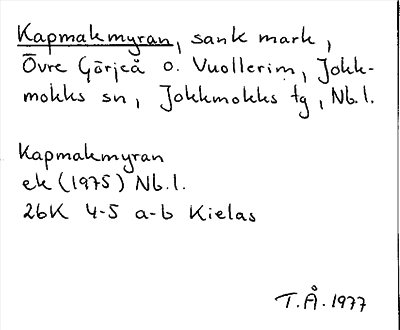 Kapmakmyran, sank mark,
Övre Görjeå o. Vuollerim, Jokk-
mokks sn, Jokkmokks tg, Nb.l.
Kapmakmyran
ek (1975) Nb.l.
26K 4-5 a-b Kielas
T.Å. 1977